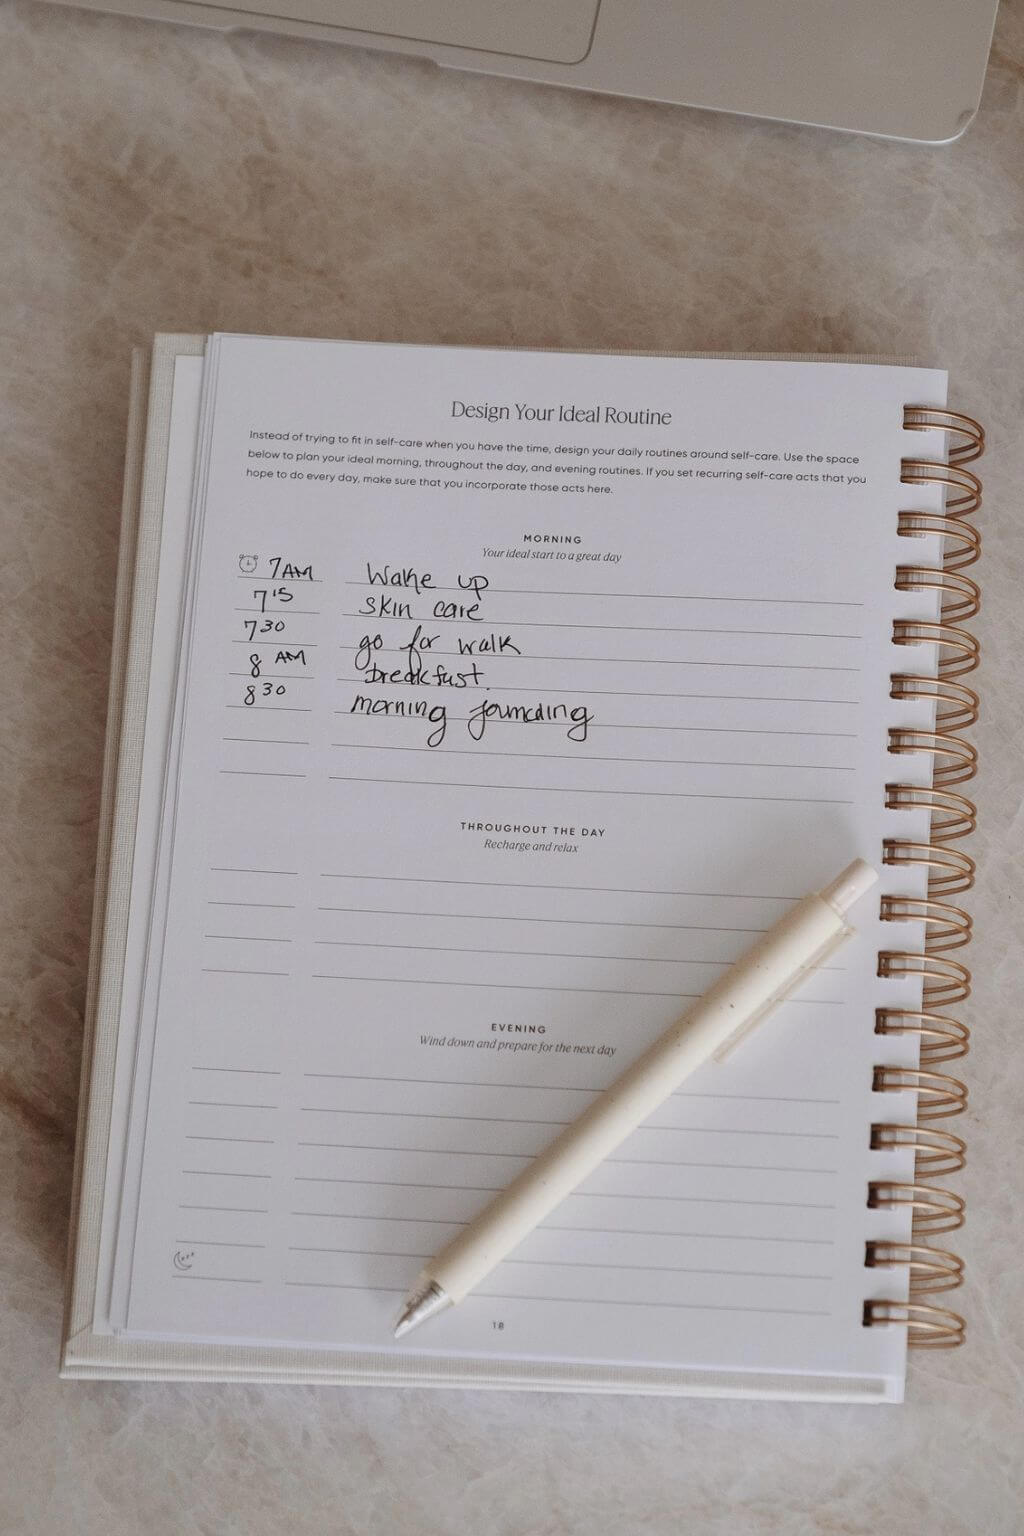 Design Your Ideal Routine
Instead of trying to fit in self-care when you have the time, design your daily routines around self-care. Use the space
below to plan your ideal morning, throughout the day, and evening routines. If you set recurring self-care acts that you
hope to do every day, make sure that you incorporate those acts here.
MORNING
Your ideal start to a great day
7AM Wake up
7 15 skin care
7 30 go for walk
8 AM breakfast.
8 30 morning journaling
THROUGHOUT THE DAY
Recharge and relax
EVENING
Wind down and prepare for the next day
zzz
18